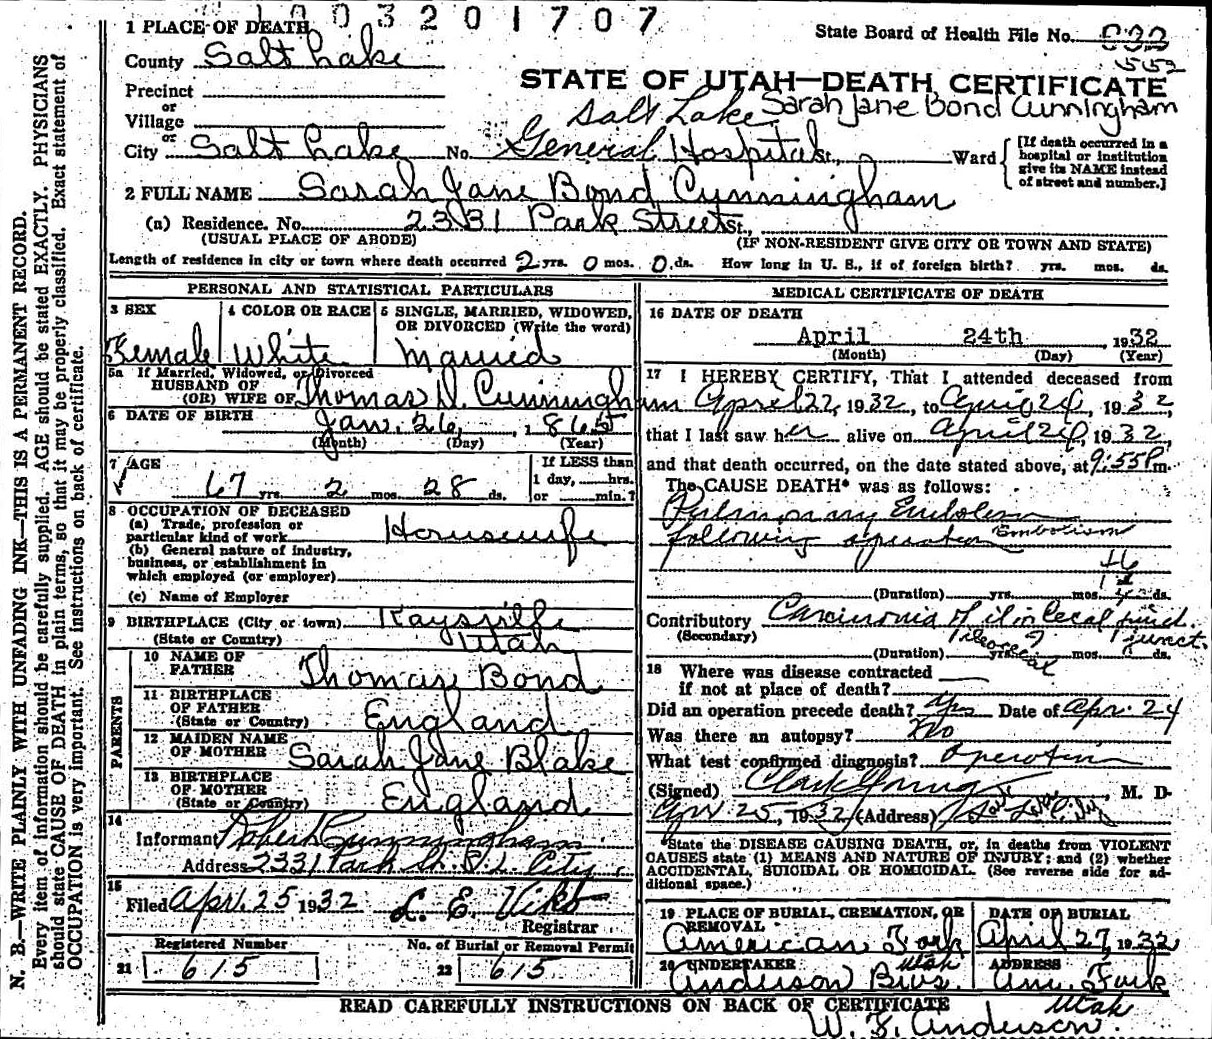 1003201707
1 PLACE OF DEATH
State Board of Health File No. 832
552
County Salt Lake
STATE OF UTAH—DEATH CERTIFICATE
Precinct
or
Village
or
Salt Lake Sarah Jane Bond Cunningham
City Salt Lake No. General Hospital St., Ward
[If death occurred in a hospital or institution give its NAME instead of street and number.]
2 FULL NAME Sarah Jane Bond Cunningham
(a) Residence. No. 2331 Park Street St.,
(USUAL PLACE OF ABODE) (IF NON-RESIDENT GIVE CITY OR TOWN AND STATE)
Length of residence in city or town where death occurred 2 yrs. 0 mos. 0 ds. How long in U. S., if of foreign birth? yrs. mos. ds.
PERSONAL AND STATISTICAL PARTICULARS
3 SEX
Female
4 COLOR OR RACE
White
5 SINGLE, MARRIED, WIDOWED,
OR DIVORCED (Write the word)
Married
5a If Married, Widowed, or Divorced
HUSBAND OF
(OR) WIFE OF Thomas D. Cunningham
6 DATE OF BIRTH Jan. 26, 1865
(Month) (Day) (Year)
7 AGE
67 yrs. 2 mos. 28 ds.
If LESS than
1 day, hrs.
or min.?
8 OCCUPATION OF DECEASED
(a) Trade, profession or
particular kind of work Housewife
(b) General nature of industry,
business, or establishment in
which employed (or employer)
(c) Name of Employer
9 BIRTHPLACE (City or town) Kaysville
(State or Country) Utah
PARENTS
10 NAME OF
FATHER Thomas Bond
11 BIRTHPLACE
OF FATHER
(State or Country) England
12 MAIDEN NAME
OF MOTHER Sarah Jane Blake
13 BIRTHPLACE
OF MOTHER
(State or Country) England
14
Informant Robert Cunningham
Address 2331 Park St. S. L. City
15
Filed Apr. 25 1932 L. E. Viko
Registrar
Registered Number
21 615
No. of Burial or Removal Permit
22 615
MEDICAL CERTIFICATE OF DEATH
16 DATE OF DEATH
April 24th, 1932
(Month) (Day) (Year)
17 I HEREBY CERTIFY, That I attended deceased from
April 22, 1932, to April 24, 1932,
that I last saw her alive on April 24, 1932,
and that death occurred, on the date stated above, at 9:55 P m.
The CAUSE DEATH* was as follows:
Pulmonary Embolism
following operation Embolism
46
(Duration) yrs. mos. ds.
Contributory Carcinoma of iliocecal junct.
(Secondary) ileocecal junct.
(Duration) yrs. ? mos. ds.
18 Where was disease contracted
if not at place of death?
Did an operation precede death? Yes Date of Apr. 24
Was there an autopsy? No
What test confirmed diagnosis? Operation
(Signed) Clark Young, M. D.
Apr 25, 1932 (Address) Salt Lake City
*State the DISEASE CAUSING DEATH, or, in deaths from VIOLENT
CAUSES state (1) MEANS AND NATURE OF INJURY; and (2) whether
ACCIDENTAL, SUICIDAL OR HOMICIDAL. (See reverse side for ad-
ditional space.)
19 PLACE OF BURIAL, CREMATION, OR
REMOVAL
American Fork
Utah
DATE OF BURIAL
April 27, 1932
20 UNDERTAKER
Anderson Bros.
ADDRESS
Am. Fork
Utah
READ CAREFULLY INSTRUCTIONS ON BACK OF CERTIFICATE
W. F. Anderson.
N. B.—WRITE PLAINLY WITH UNFADING INK—THIS IS A PERMANENT RECORD.
Every item of information should be carefully supplied. AGE should be stated EXACTLY. PHYSICIANS
should state CAUSE OF DEATH in plain terms, so that it may be properly classified. Exact statement of
OCCUPATION is very important. See instructions on back of certificate.